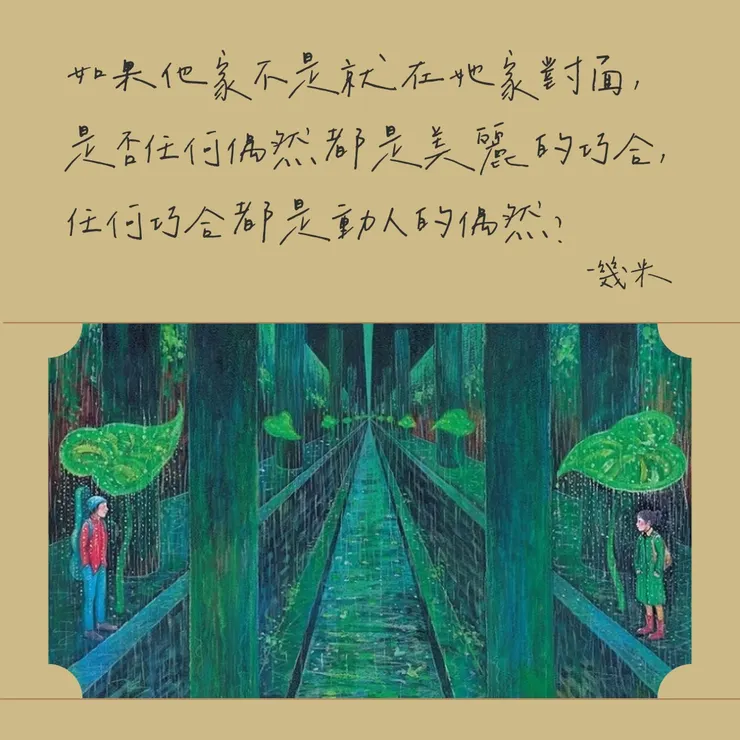 如果他家不是就在她家對面，
是否任何偶然都是美麗的巧合，
任何巧合都是動人的偶然？
幾米